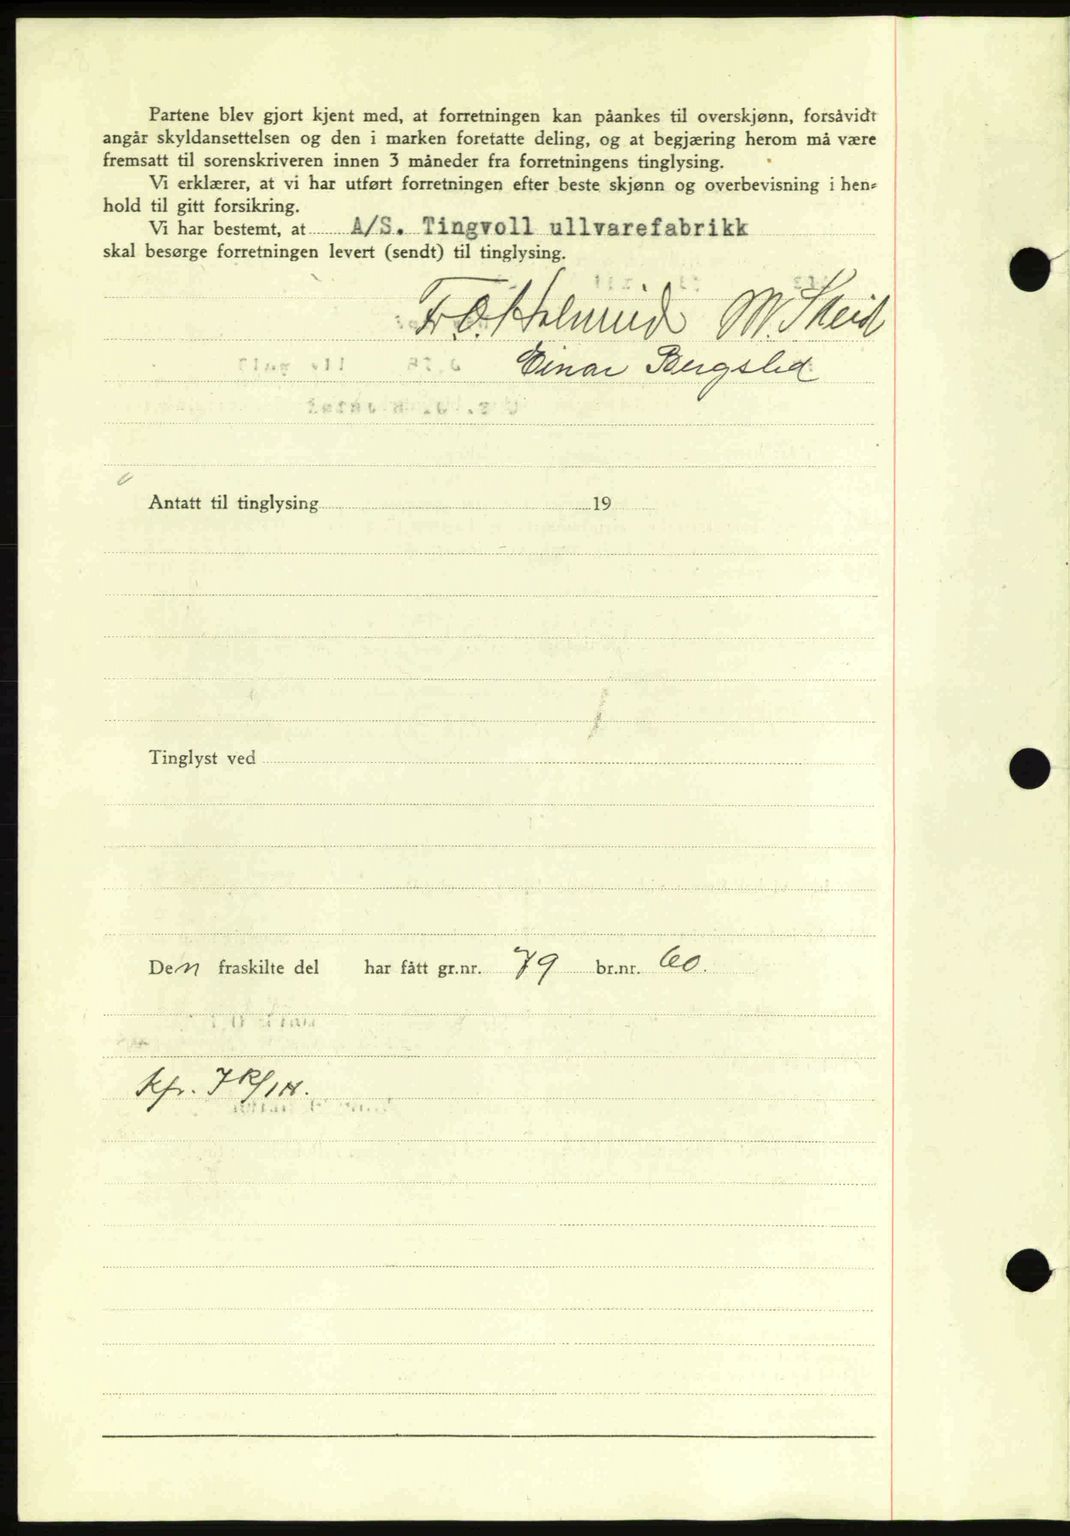 Partene blev gjort kjent med, at forretningen kan påankes til overskjønn, forsåvidt
angår skyldansettelsen og den i marken foretatte deling, og at begjæring herom må være
fremsatt til sorenskriveren innen 3 måneder fra forretningens tinglysing.
Vi erklærer, at vi har utført forretningen efter beste skjønn og overbevisning i hen-
hold til gitt forsikring.
Vi har bestemt, at A/S. Tingvoll ullvarefabrikk
skal besørge forretningen levert (sendt) til tinglysing.
M. Skeid
Einar Bergslid
Antatt til tinglysing 19
Tinglyst ved
Den fraskilte del har fått gr.nr. 79 br.nr. 60.
Kfr.